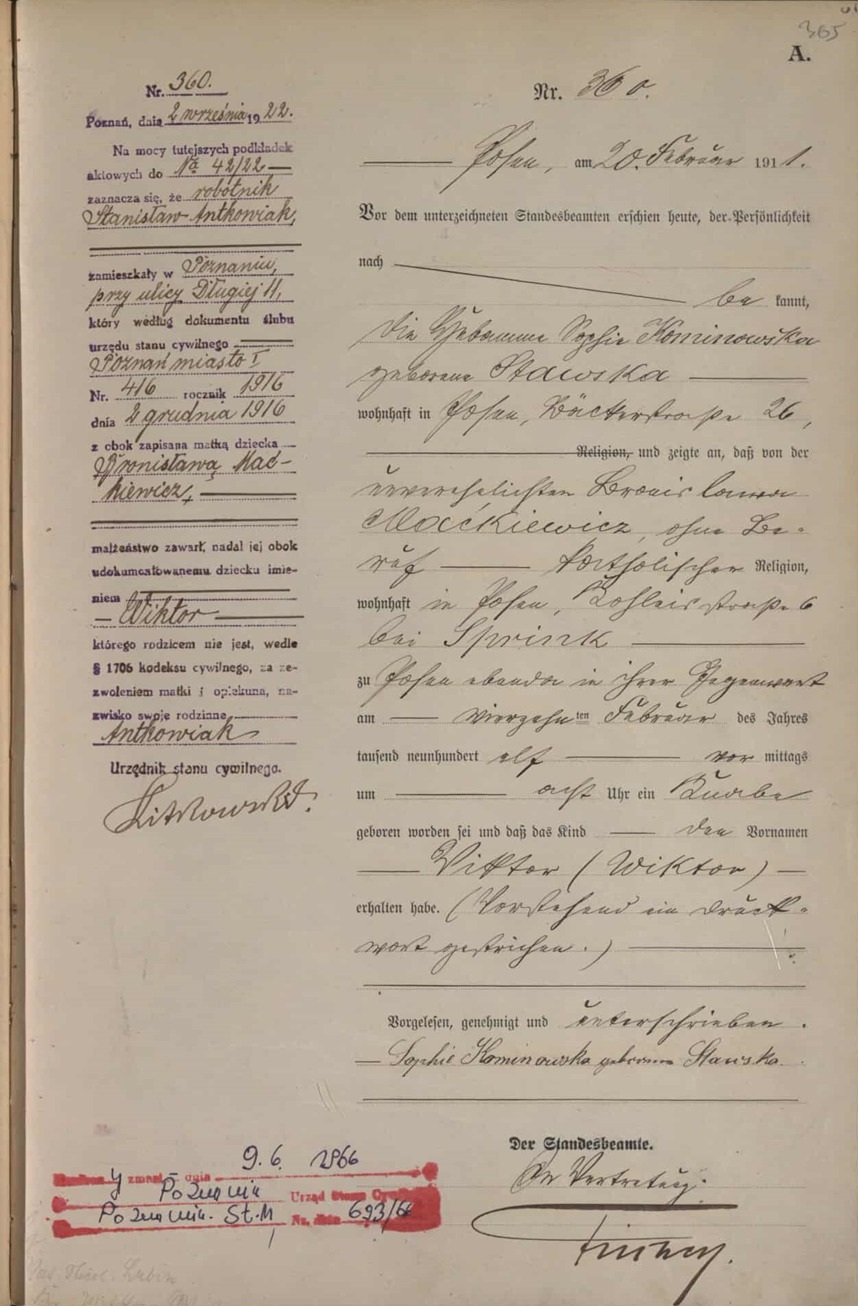 365
A.
Nr. 360.
Poznań, dnia 2 września 1922.
Na mocy tutejszych podkładek
aktowych do № 42/22
zaznacza się, że robotnik
Stanisław Antkowiak,
zamieszkały w Poznaniu,
przy ulicy Długiej 11,
który według dokumentu ślubu
urzędu stanu cywilnego
Poznań miasto I
Nr. 416 rocznik 1916
dnia 2 grudnia 1916
z obok zapisaną matką dziecka
Bronisławą Mać-
kiewicz,
małżeństwo zawarł, nadał jej obok
udokumentowanemu dziecku imie-
niem
Wiktor
którego rodzicem nie jest, wedle
§ 1706 kodeksu cywilnego, za ze-
zwoleniem matki i opiekuna, na-
zwisko swoje rodzinne
Antkowiak
Urzędnik stanu cywilnego.
9.6. 1966
Poznania
Poznania. St. M Urząd Stanu
Nr. 693/66
Nr. 360.
Posen, am 20. Februar 1911.
Vor dem unterzeichneten Standesbeamten erschien heute, der Persönlichkeit
nach
be kannt,
die Hebamme Sophie Kominowska
geborene Stawska
wohnhaft in Posen, Bäckerstraße 26,
Religion, und zeigte an, daß von der
unverehelichten Bronislawa
Maćkiewicz, ohne Be-
ruf katholischer Religion,
wohnhaft in Posen, Kohleisstraße 6
bei Sprink
zu Posen ebenda in ihrer Gegenwart
am vierzehnten Februar des Jahres
tausend neunhundert elf vor mittags
um acht Uhr ein Knabe
geboren worden sei und daß das Kind den Vornamen
Viktor (Wiktor)
erhalten habe. (Vorstehend ein Druck-
wort gestrichen.)
Vorgelesen, genehmigt und unterschrieben.
Sophie Kominowska geborene Stawska.
Der Standesbeamte.
In Vertretung.